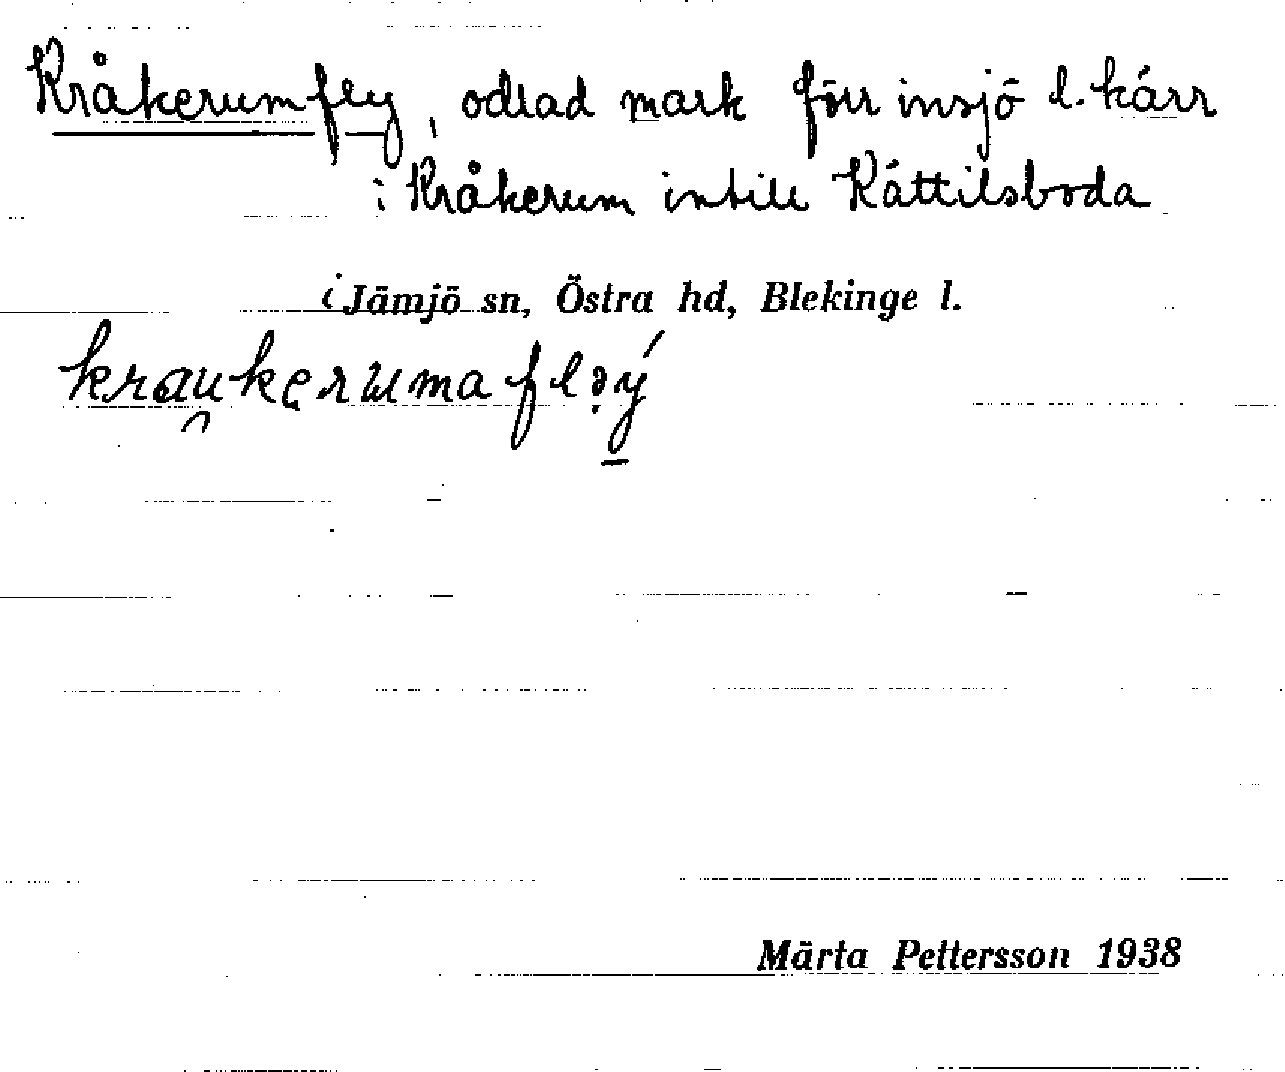 Kråkerumfly, odlad mark förr insjö l. kärr
i Kråkerum intill Kättilsboda
i Jämjö sn, Östra hd, Blekinge l.
krau̯kerumafləý̲
Märta Pettersson 1938